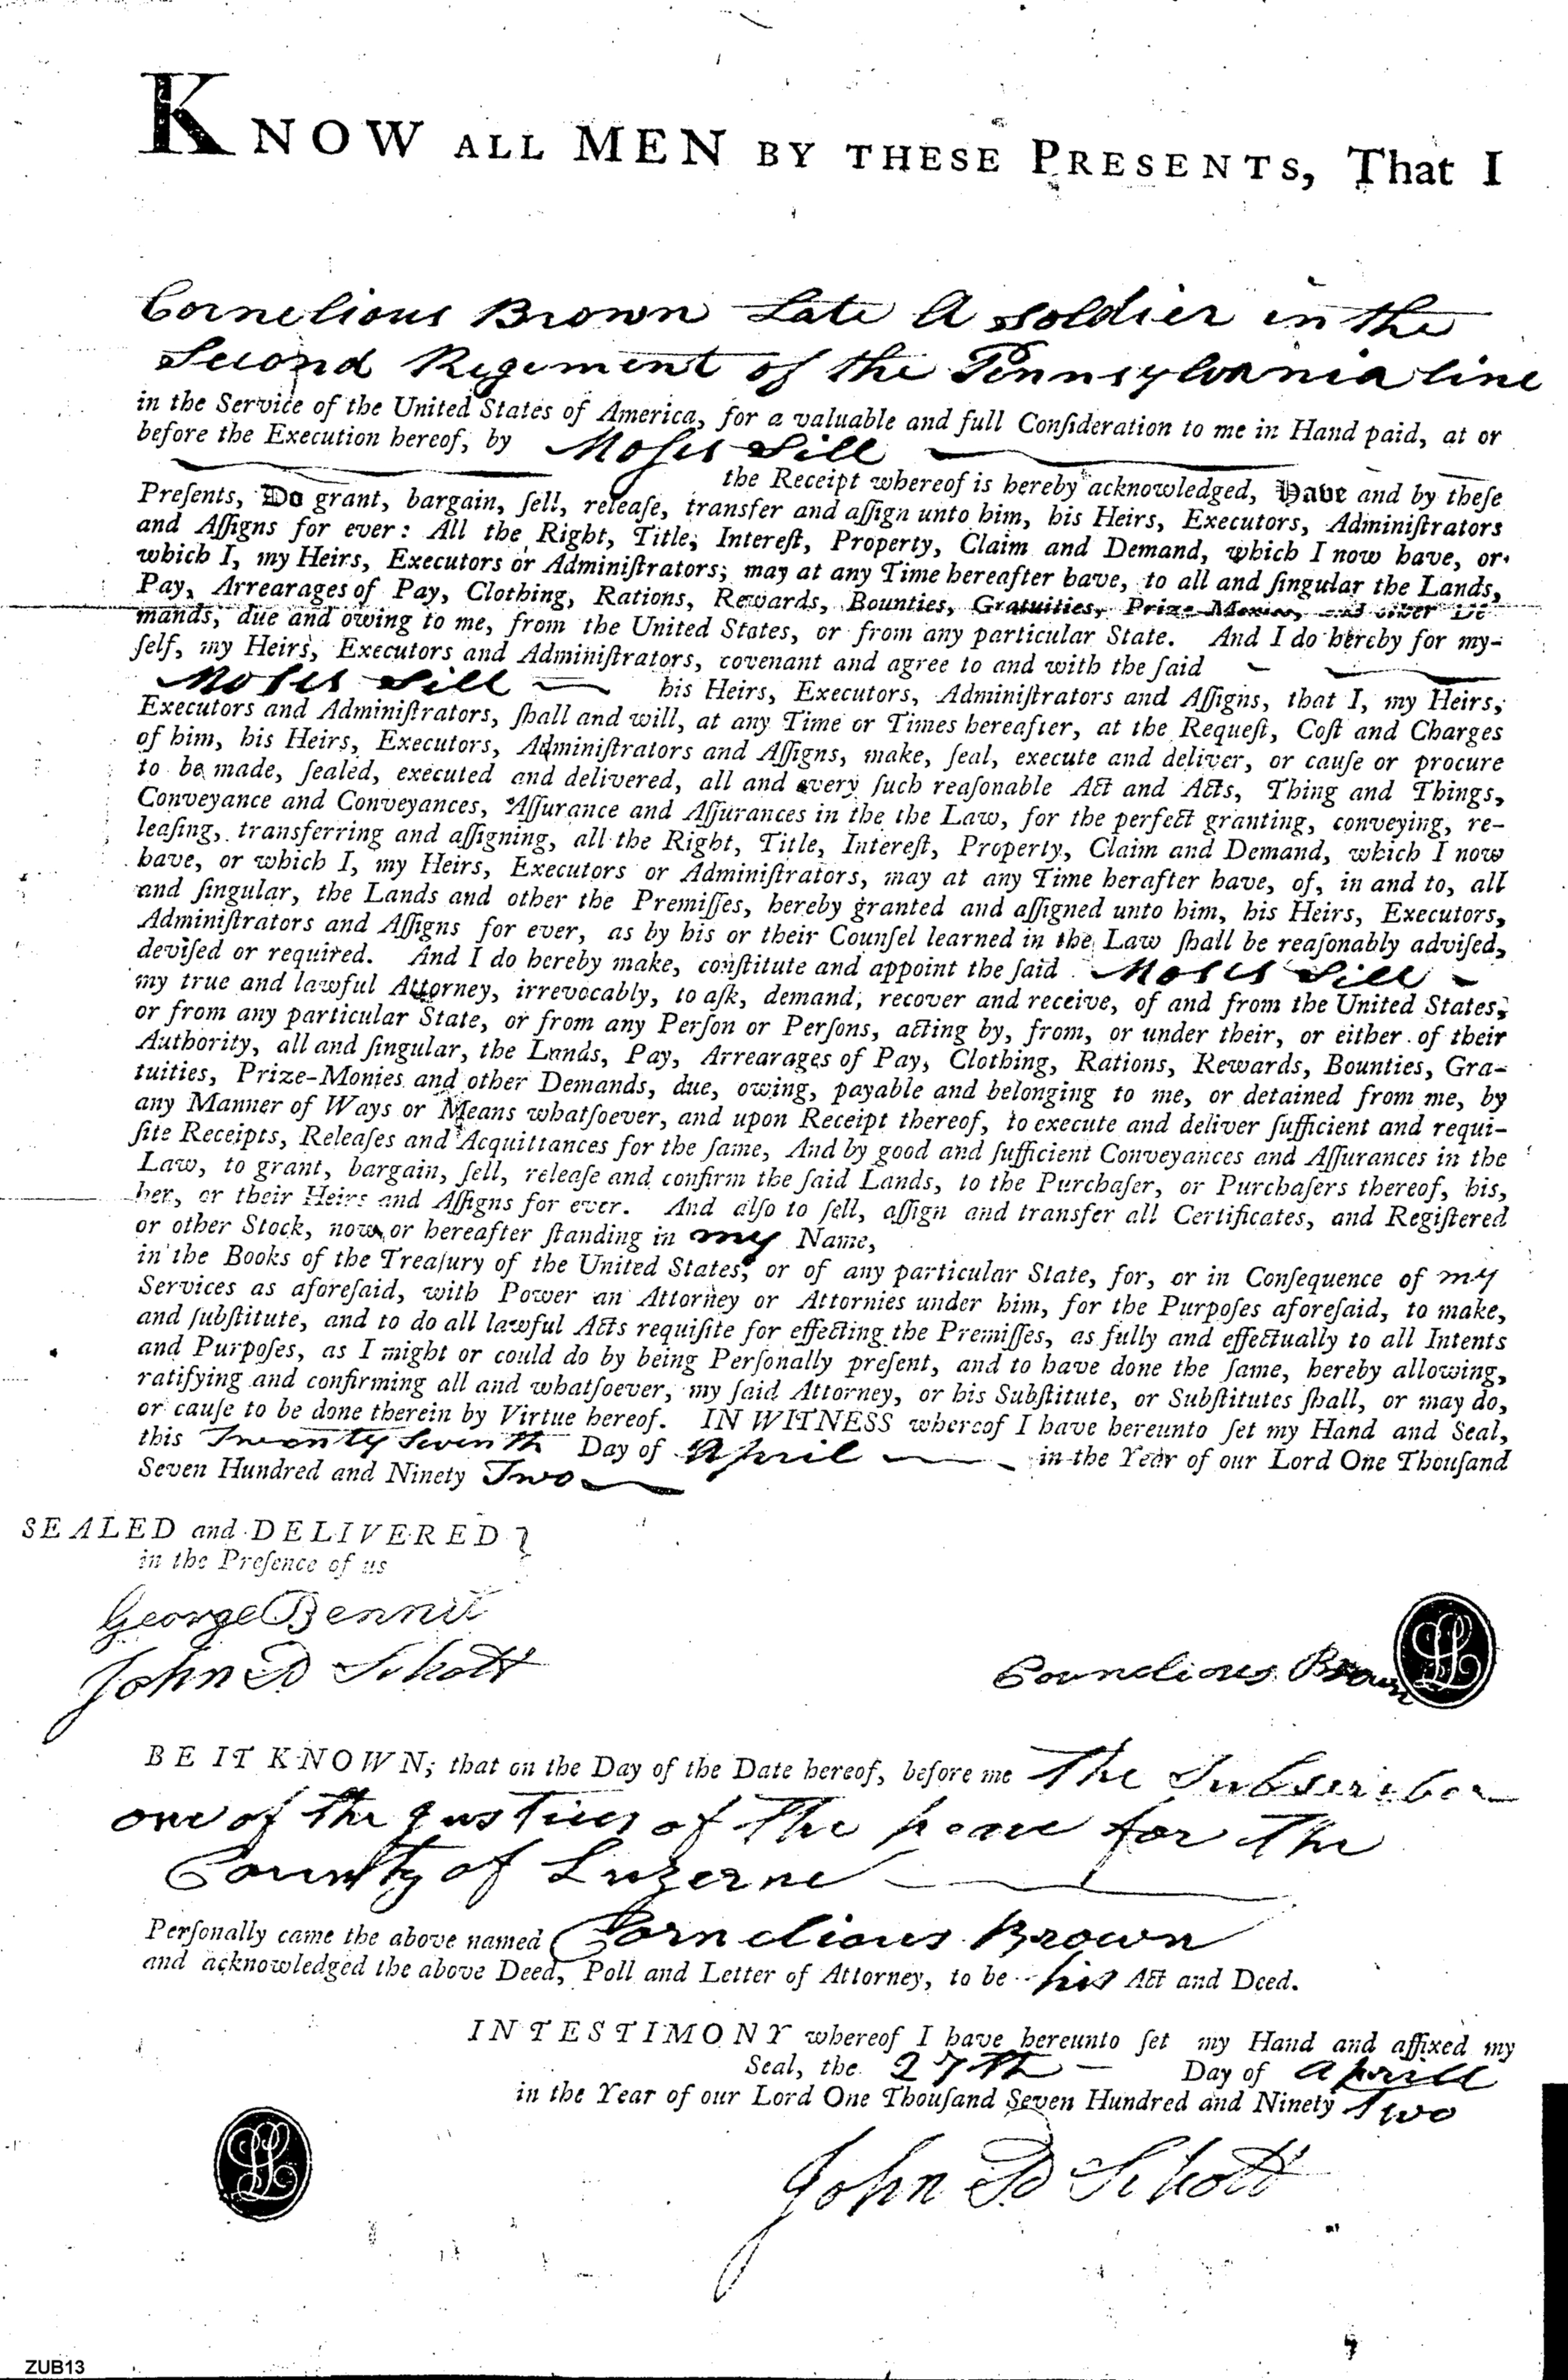 KNOW ALL MEN BY THESE PRESENTS, That I
Cornelious Brown Late A Soldier in the
Second Regement of the Pennsylvania line
in the Service of the United States of America, for a valuable and full Conſideration to me in Hand paid, at or
before the Execution hereof, by Moſes Sill
the Receipt whereof is hereby acknowledged, Have and by theſe
Preſents, Do grant, bargain, ſell, releaſe, transfer and aſſign unto him, his Heirs, Executors, Adminiſtrators
and Aſſigns for ever: All the Right, Title, Intereſt, Property, Claim and Demand, which I now have, or
which I, my Heirs, Executors or Adminiſtrators, may at any Time hereafter have, to all and ſingular the Lands,
Pay, Arrearages of Pay, Clothing, Rations, Rewards, Bounties, Gratuities, Prize-Monies, and other De-
mands, due and owing to me, from the United States, or from any particular State. And I do hereby for my-
ſelf, my Heirs, Executors and Adminiſtrators, covenant and agree to and with the ſaid
Moses Sill his Heirs, Executors, Adminiſtrators and Aſſigns, that I, my Heirs,
Executors and Adminiſtrators, ſhall and will, at any Time or Times hereafter, at the Requeſt, Coſt and Charges
of him, his Heirs, Executors, Adminiſtrators and Aſſigns, make, ſeal, execute and deliver, or cauſe or procure
to be made, ſealed, executed and delivered, all and every ſuch reaſonable Act and Acts, Thing and Things,
Conveyance and Conveyances, Aſſurance and Aſſurances in the the Law, for the perfect granting, conveying, re-
leaſing, transferring and aſſigning, all the Right, Title, Intereſt, Property, Claim and Demand, which I now
have, or which I, my Heirs, Executors or Adminiſtrators, may at any Time herafter have, of, in and to, all
and ſingular, the Lands and other the Premiſſes, hereby granted and aſſigned unto him, his Heirs, Executors,
Adminiſtrators and Aſſigns for ever, as by his or their Counſel learned in the Law ſhall be reaſonably adviſed,
deviſed or required. And I do hereby make, conſtitute and appoint the ſaid Moses Sill
my true and lawful Attorney, irrevocably, to aſk, demand, recover and receive, of and from the United States,
or from any particular State, or from any Perſon or Perſons, acting by, from, or under their, or either of their
Authority, all and ſingular, the Lands, Pay, Arrearages of Pay, Clothing, Rations, Rewards, Bounties, Gra-
tuities, Prize-Monies and other Demands, due, owing, payable and belonging to me, or detained from me, by
any Manner of Ways or Means whatſoever, and upon Receipt thereof, to execute and deliver ſufficient and requi-
ſite Receipts, Releaſes and Acquittances for the ſame, And by good and ſufficient Conveyances and Aſſurances in the
Law, to grant, bargain, ſell, releaſe and confirm the ſaid Lands, to the Purchaſer, or Purchaſers thereof, his,
her, or their Heirs and Aſſigns for ever. And alſo to ſell, aſſign and transfer all Certificates, and Regiſtered
or other Stock, now or hereafter ſtanding in my Name,
in the Books of the Treaſury of the United States, or of any particular State, for, or in Conſequence of my
Services as aforeſaid, with Power an Attorney or Attornies under him, for the Purpoſes aforeſaid, to make,
and ſubſtitute, and to do all lawful Acts requiſite for effecting the Premiſſes, as fully and effectually to all Intents
and Purpoſes, as I might or could do by being Perſonally preſent, and to have done the ſame, hereby allowing,
ratifying and confirming all and whatſoever, my ſaid Attorney, or his Subſtitute, or Subſtitutes ſhall, or may do,
or cauſe to be done therein by Virtue hereof. IN WITNESS whereof I have hereunto ſet my Hand and Seal,
this Twenty Seventh Day of April in the Year of our Lord One Thouſand
Seven Hundred and Ninety Two
SEALED and DELIVERED
in the Preſence of us
George Bennit
John D Schott
Cornelious Brown
BE IT KNOWN; that on the Day of the Date hereof, before me The Subscriber
one of the Justices of the peace for the
County of Luzerne
Perſonally came the above named Cornelious Brown
and acknowledged the above Deed, Poll and Letter of Attorney, to be his Act and Deed.
IN TESTIMONY whereof I have hereunto ſet my Hand and affixed my
Seal, the 27th Day of Aprill
in the Year of our Lord One Thouſand Seven Hundred and Ninety Two
John D Schott
ZUB13